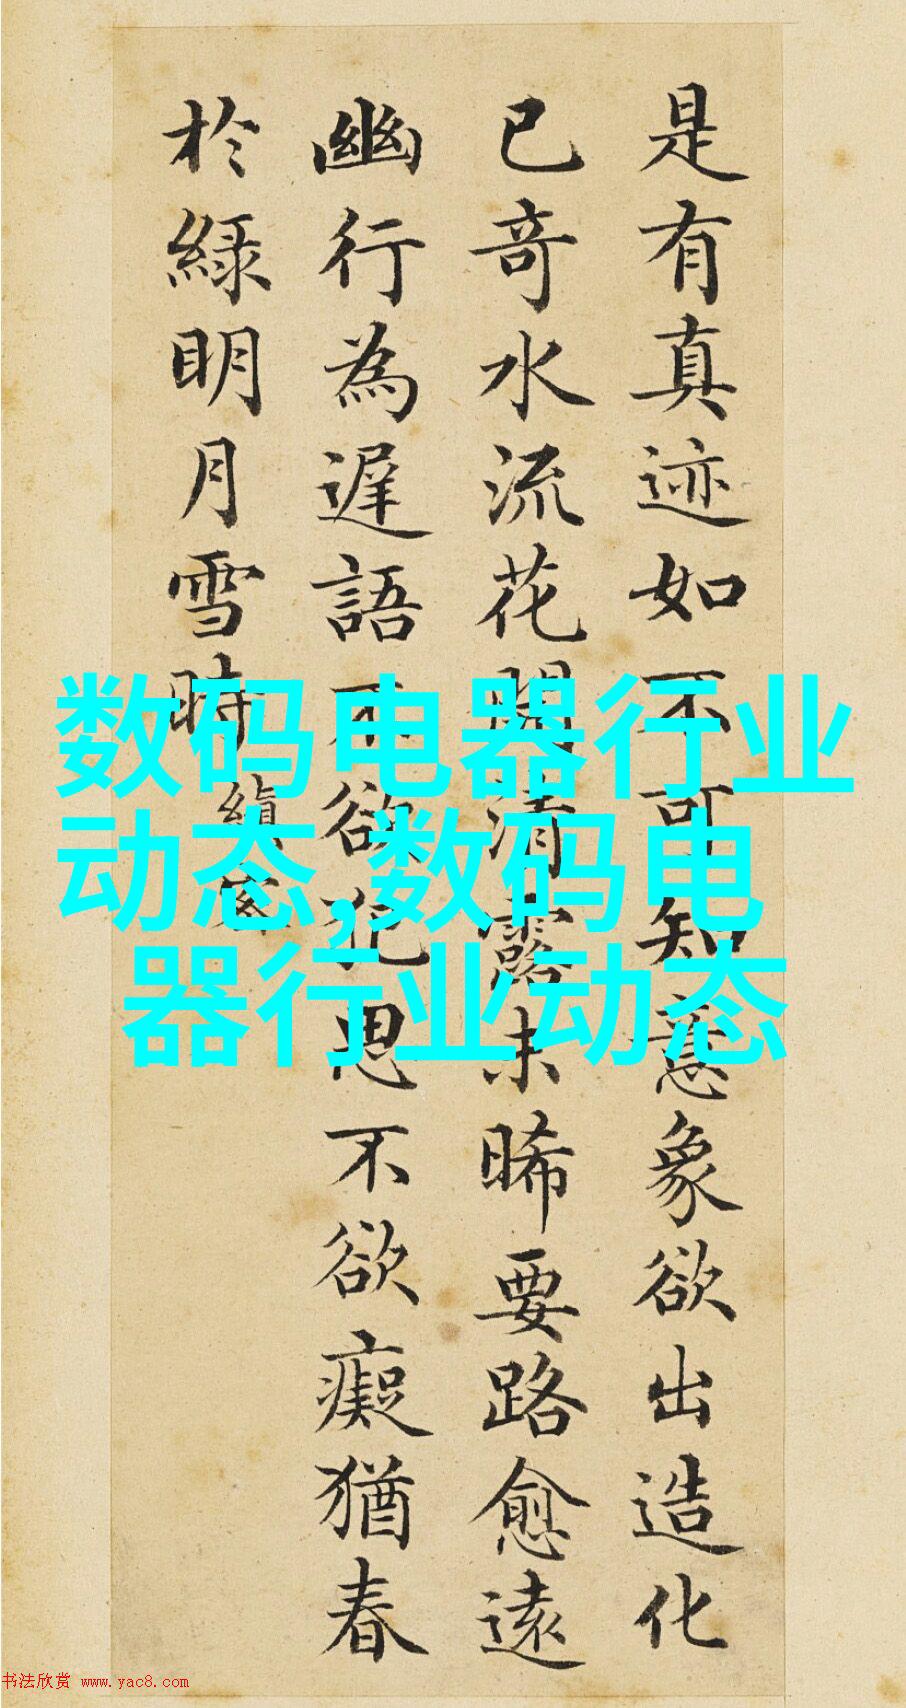 是有真迹如不可知意象欲出造化
已奇水流花開清露未晞要路愈遠
幽行為遲語不欲犯思不欲癡猶春
於綠明月雪時
縝密
数码电器行业
动态,数码电
器行业动态
书法欣赏 www.yac8.com